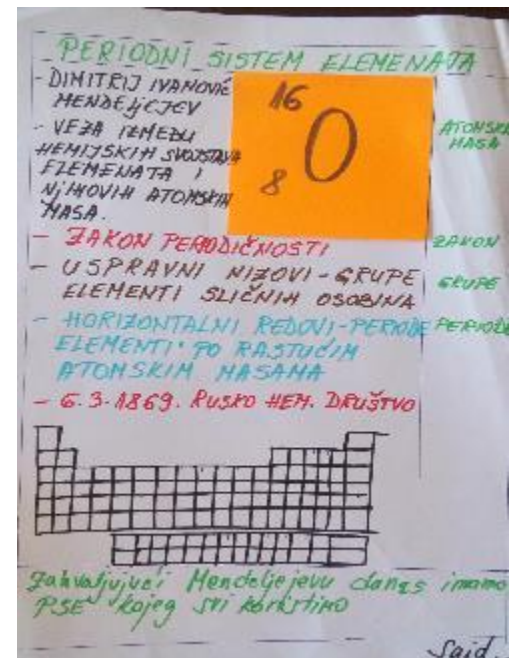 PERIODNI SISTEM ELEMENATA
- DIMITRIJ IVANOVIČ
MENDELJEJEV
- VEZA IZMEĐU
HEMIJSKIH SVOJSTAVA
ELEMENATA I
NJIHOVIH ATOMSKIH
MASA.
16
O
8
ATOMSKA
MASA
- ZAKON PERIODIČNOSTI
ZAKON
- USPRAVNI NIZOVI - GRUPE
ELEMENTI SLIČNIH OSOBINA
GRUPE
- HORIZONTALNI REDOVI - PERIODE
ELEMENTI PO RASTUĆIM
ATOMSKIM MASAMA
PERIODE
- 6.3.1869. RUSKO HEM. DRUŠTVO
Zahvaljujući Mendeljejevu danas imamo
PSE kojeg svi koristimo
Said.